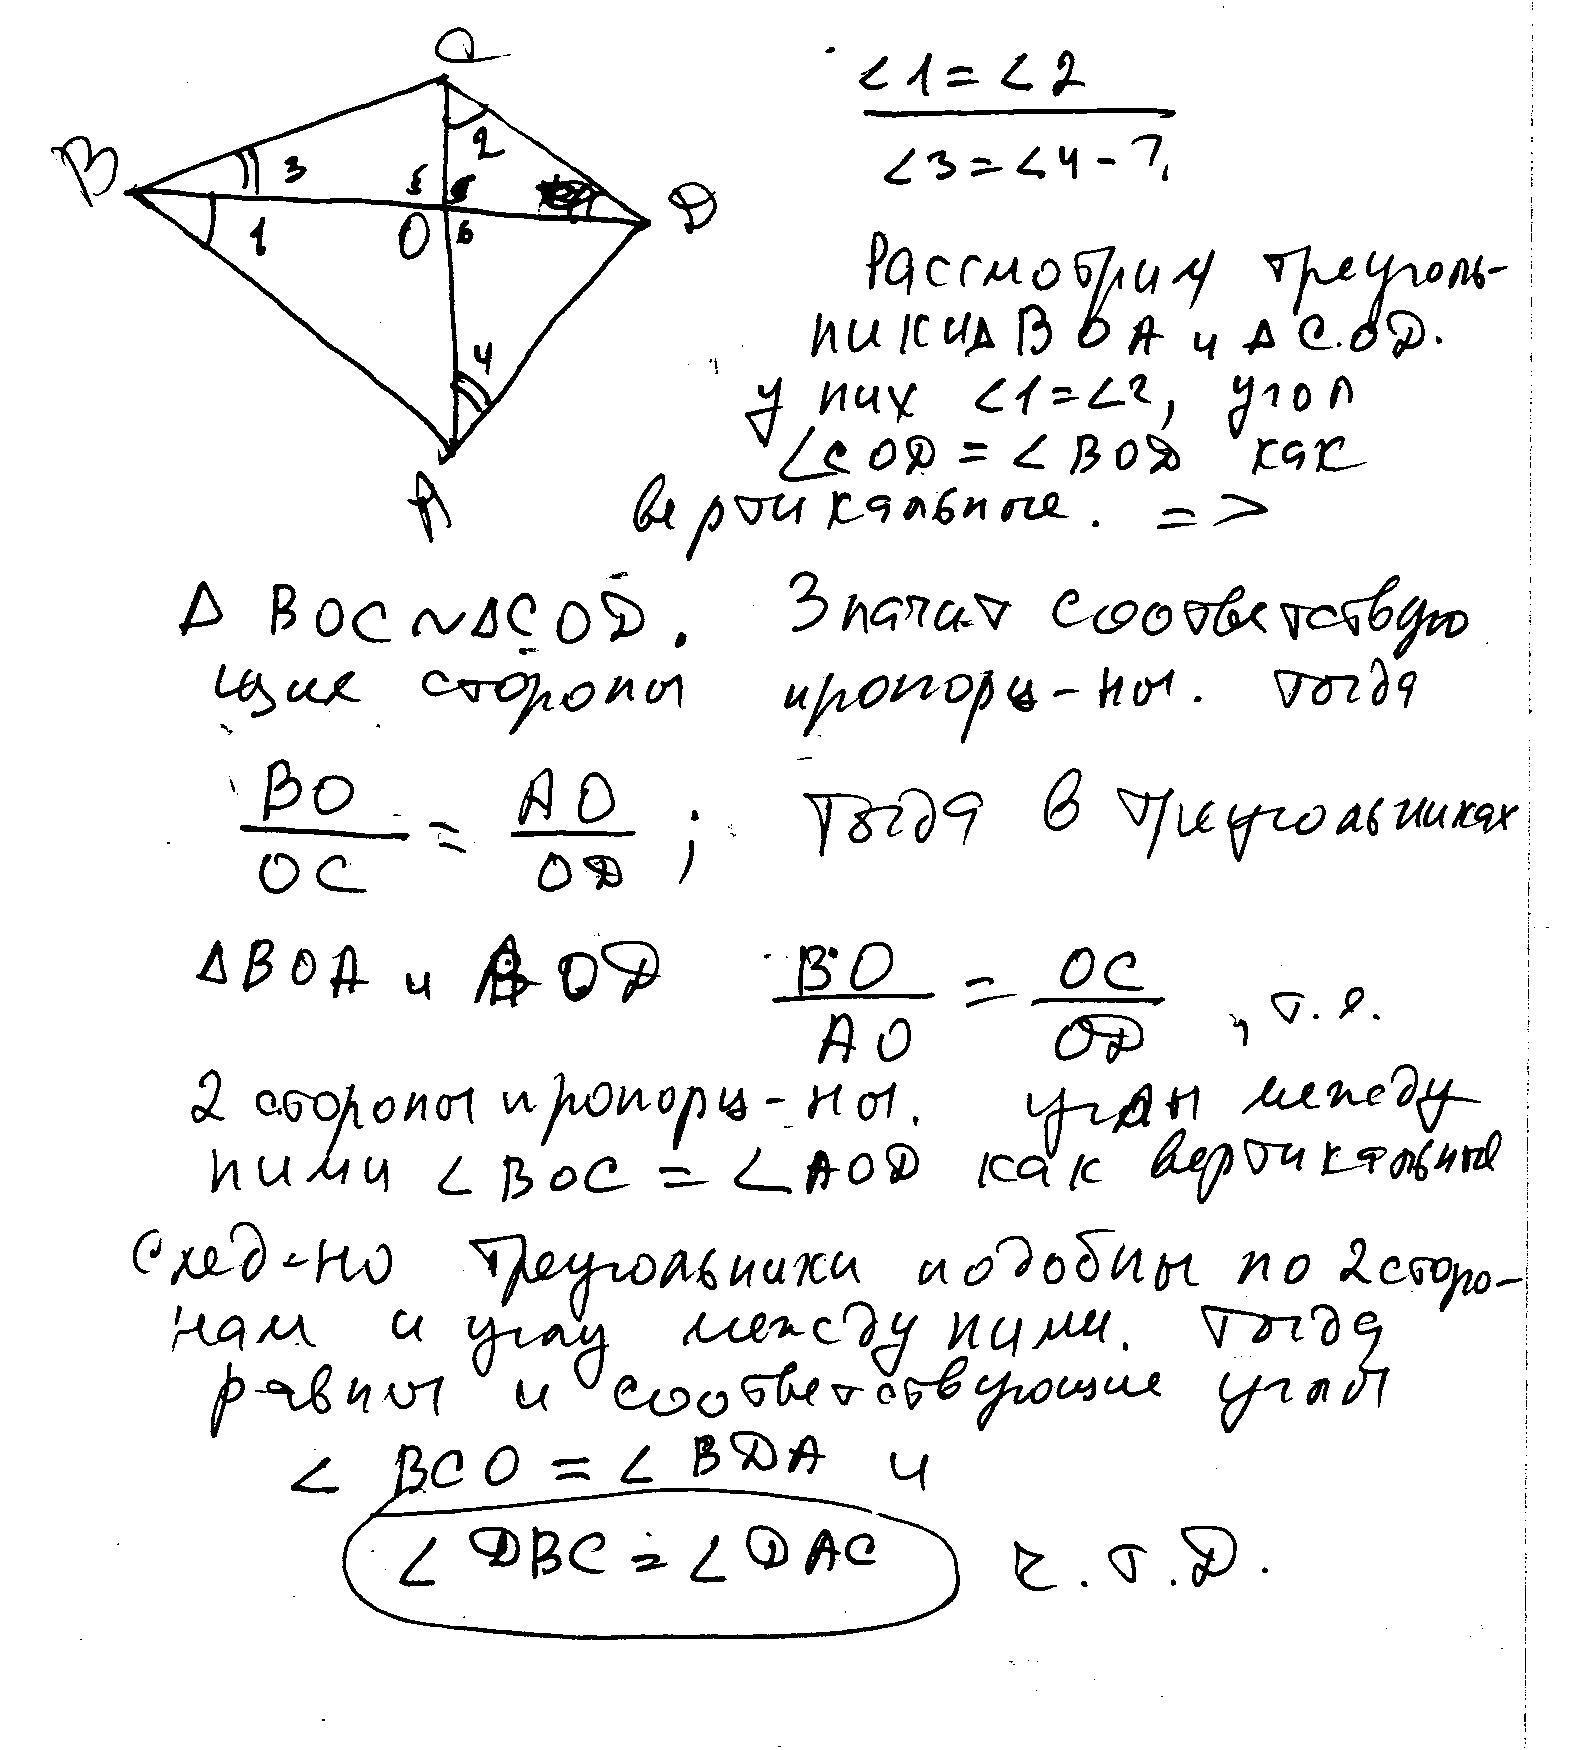 C
∠1=∠2
B
3
2
∠3=∠4-?
5
Д
1
O
6
Рассмотрим треуголь-
4
ники Δ BOA и Δ COД.
У них ∠1=∠2, угол
∠COД = ∠BOД как
A
вертикальные. =>
Δ BOC ~ Δ COД. Значит соответствую
щие стороны пропорц-ны. Тогда
BO/OC = AO/OД ; Тогда в треугольниках
Δ BOA и AOД BO/AO = OC/OД , т.е.
2 стороны пропорц-ны. углы между
ними ∠ BOC = ∠ AOД как вертикальные
След-но треугольники подобны по 2 сторо-
нам и углу между ними. Тогда
равны и соответствующие углы
∠ BCO = ∠ BДA и
∠ ДBC = ∠ ДAC ч.т.Д.